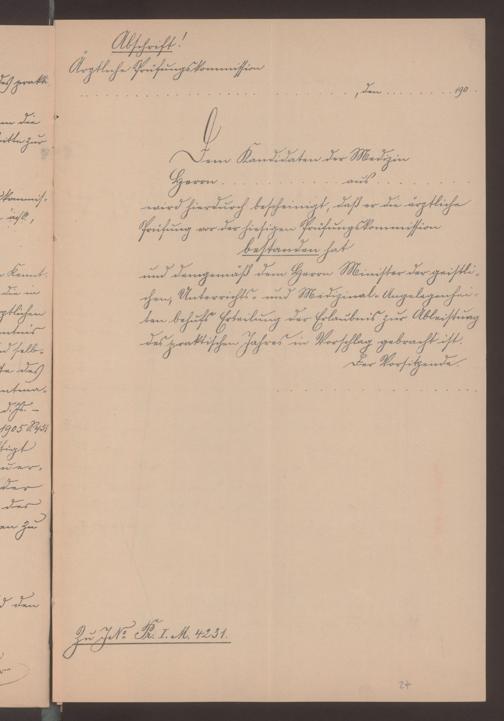 Abschrift!
Ärztliche Prüfungskommission
. . . . . . . . . . , den . . . . . . . 190 .
Dem Kandidaten der Medizin
Herrn . . . . . . . . . . aus . . . . . . . .
wird hierdurch bescheinigt, daß er die ärztliche
Prüfung vor der hiesigen Prüfungskommission
bestanden hat
und demgemäß dem Herrn Minister der geistli-
chen, Unterrichts- und Medizinal-Angelegenhei-
ten behufs Erteilung der Erlaubnis zur Ableistung
des praktischen Jahres in Vorschlag gebracht ist.
Der Vorsitzende.
. . . . . . . . . . . . . . .
Zu JNo Pr. I. M. 4231.
24